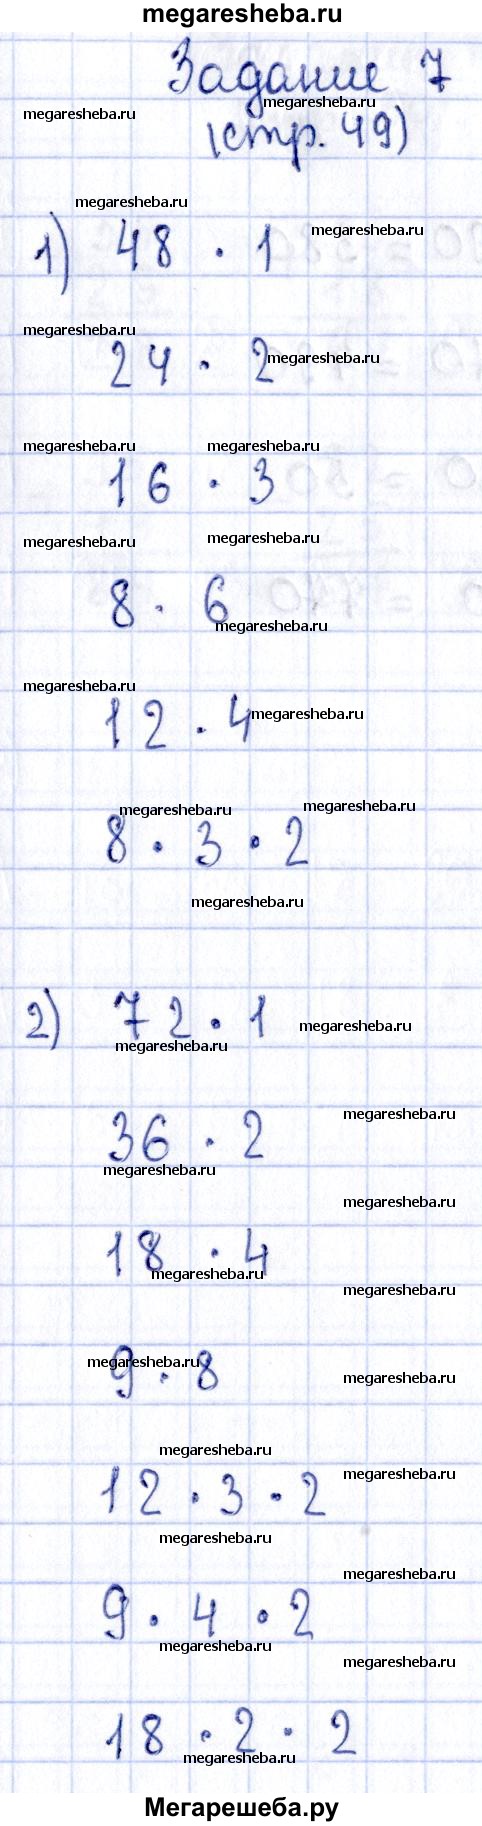 megaresheba.ru
Задание 7
megaresheba.ru megaresheba.ru
(стр. 49)
megaresheba.ru megaresheba.ru
1) 48 · 1
megaresheba.ru
24 · 2 megaresheba.ru
megaresheba.ru megaresheba.ru
16 · 3
megaresheba.ru megaresheba.ru
8 · 6
megaresheba.ru
megaresheba.ru
12 · 4 megaresheba.ru
megaresheba.ru megaresheba.ru
8 · 3 · 2
megaresheba.ru
2) 72 · 1 megaresheba.ru
megaresheba.ru
megaresheba.ru
36 · 2
megaresheba.ru
megaresheba.ru
18 · 4
megaresheba.ru
megaresheba.ru
megaresheba.ru
9 · 8 megaresheba.ru
megaresheba.ru
megaresheba.ru
12 · 3 · 2
megaresheba.ru
megaresheba.ru
9 · 4 · 2
megaresheba.ru
megaresheba.ru
18 · 2 · 2
megaresheba.ru
Мегарешеба.ру